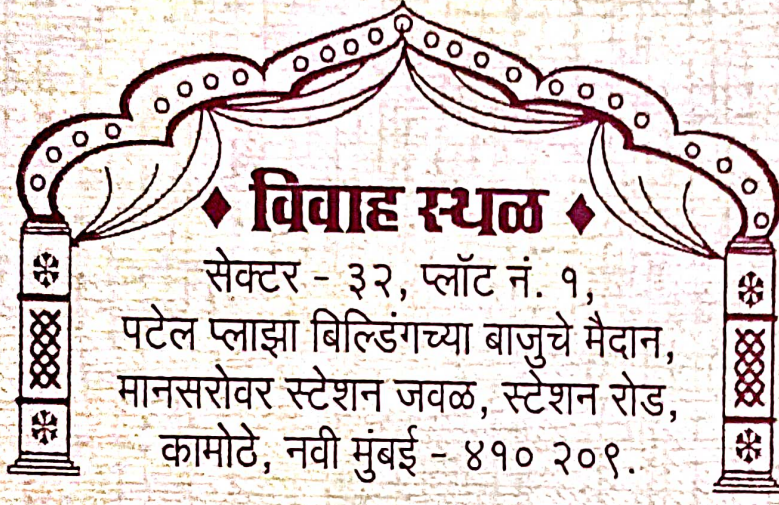 ♦ विवाह स्थळ ♦
सेक्टर - ३२, प्लॉट नं. १,
पटेल प्लाझा बिल्डिंगच्या बाजुचे मैदान,
मानसरोवर स्टेशन जवळ, स्टेशन रोड,
कामोठे, नवी मुंबई - ४१० २०९.